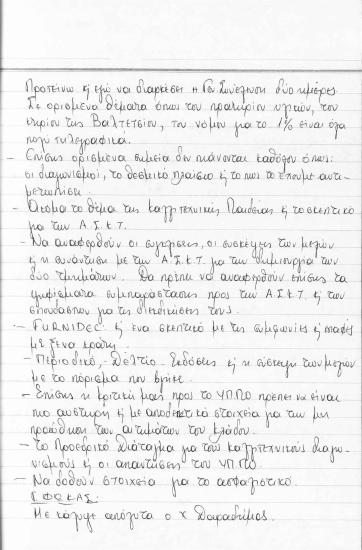 Προτείνω κ' εγώ να διαρκέσει η Γεν. Συνέλευση δύο ημέρες.
Σε ορισμένα θέματα όπως του πρατηρίου υλικών, του
κτιρίου της Βαλτετσίου, του νόμου για το 1% είναι όλα
πολύ τηλεγραφικά.
- Επίσης ορισμένα σημεία δεν πιάνονται καθόλου όπως:
οι διαγωνισμοί, το θεσμικό πλαίσιο κ' το πως το έχουμε αντι-
μετωπίσει.
- Ακόμα το θέμα της καλλιτεχνικής Παιδείας κ' το σκεπτικό
για την Α.Σ.Κ.Τ.
- Να αναφερθούν οι εισηγήσεις, οι συσκέψεις των μελών
κ' η συνάντηση με την Α.Σ.Κ.Τ. για την δημιουργία των
δύο τμημάτων. Θα πρέπει να αναφερθούν επίσης τα
ψηφίσματα συμπαράστασης προς την Α.Σ.Κ.Τ. κ' των
σπουδαστών για τις διεκδικήσεις τους.
- FURNIDEC κ' ένα σκεπτικό με τις συμφωνίες κ' επαφές
με ξένα κράτη.
- Περιοδικό, - Δελτίο - Εκδόσεις κ' η σύσκεψη των μελών
με το πόρισμα που βγήκε.
- Επίσης η κριτική μας προς το ΥΠΠΟ πρέπει να είναι
πιο αυστηρή κ' με αποδεικτικά στοιχεία για την μη
προώθηση των αιτημάτων του κλάδου.
- Το Προεδρικό Διάταγμα για τους καλλιτεχνικούς διαγω-
νισμούς κ' οι απαντήσεις του ΥΠΠΟ
- Να δοθούν στοιχεία για το ασφαλιστικό.
ΣΦΩΚΑΣ:
Με κάλυψε απόλυτα ο κ.